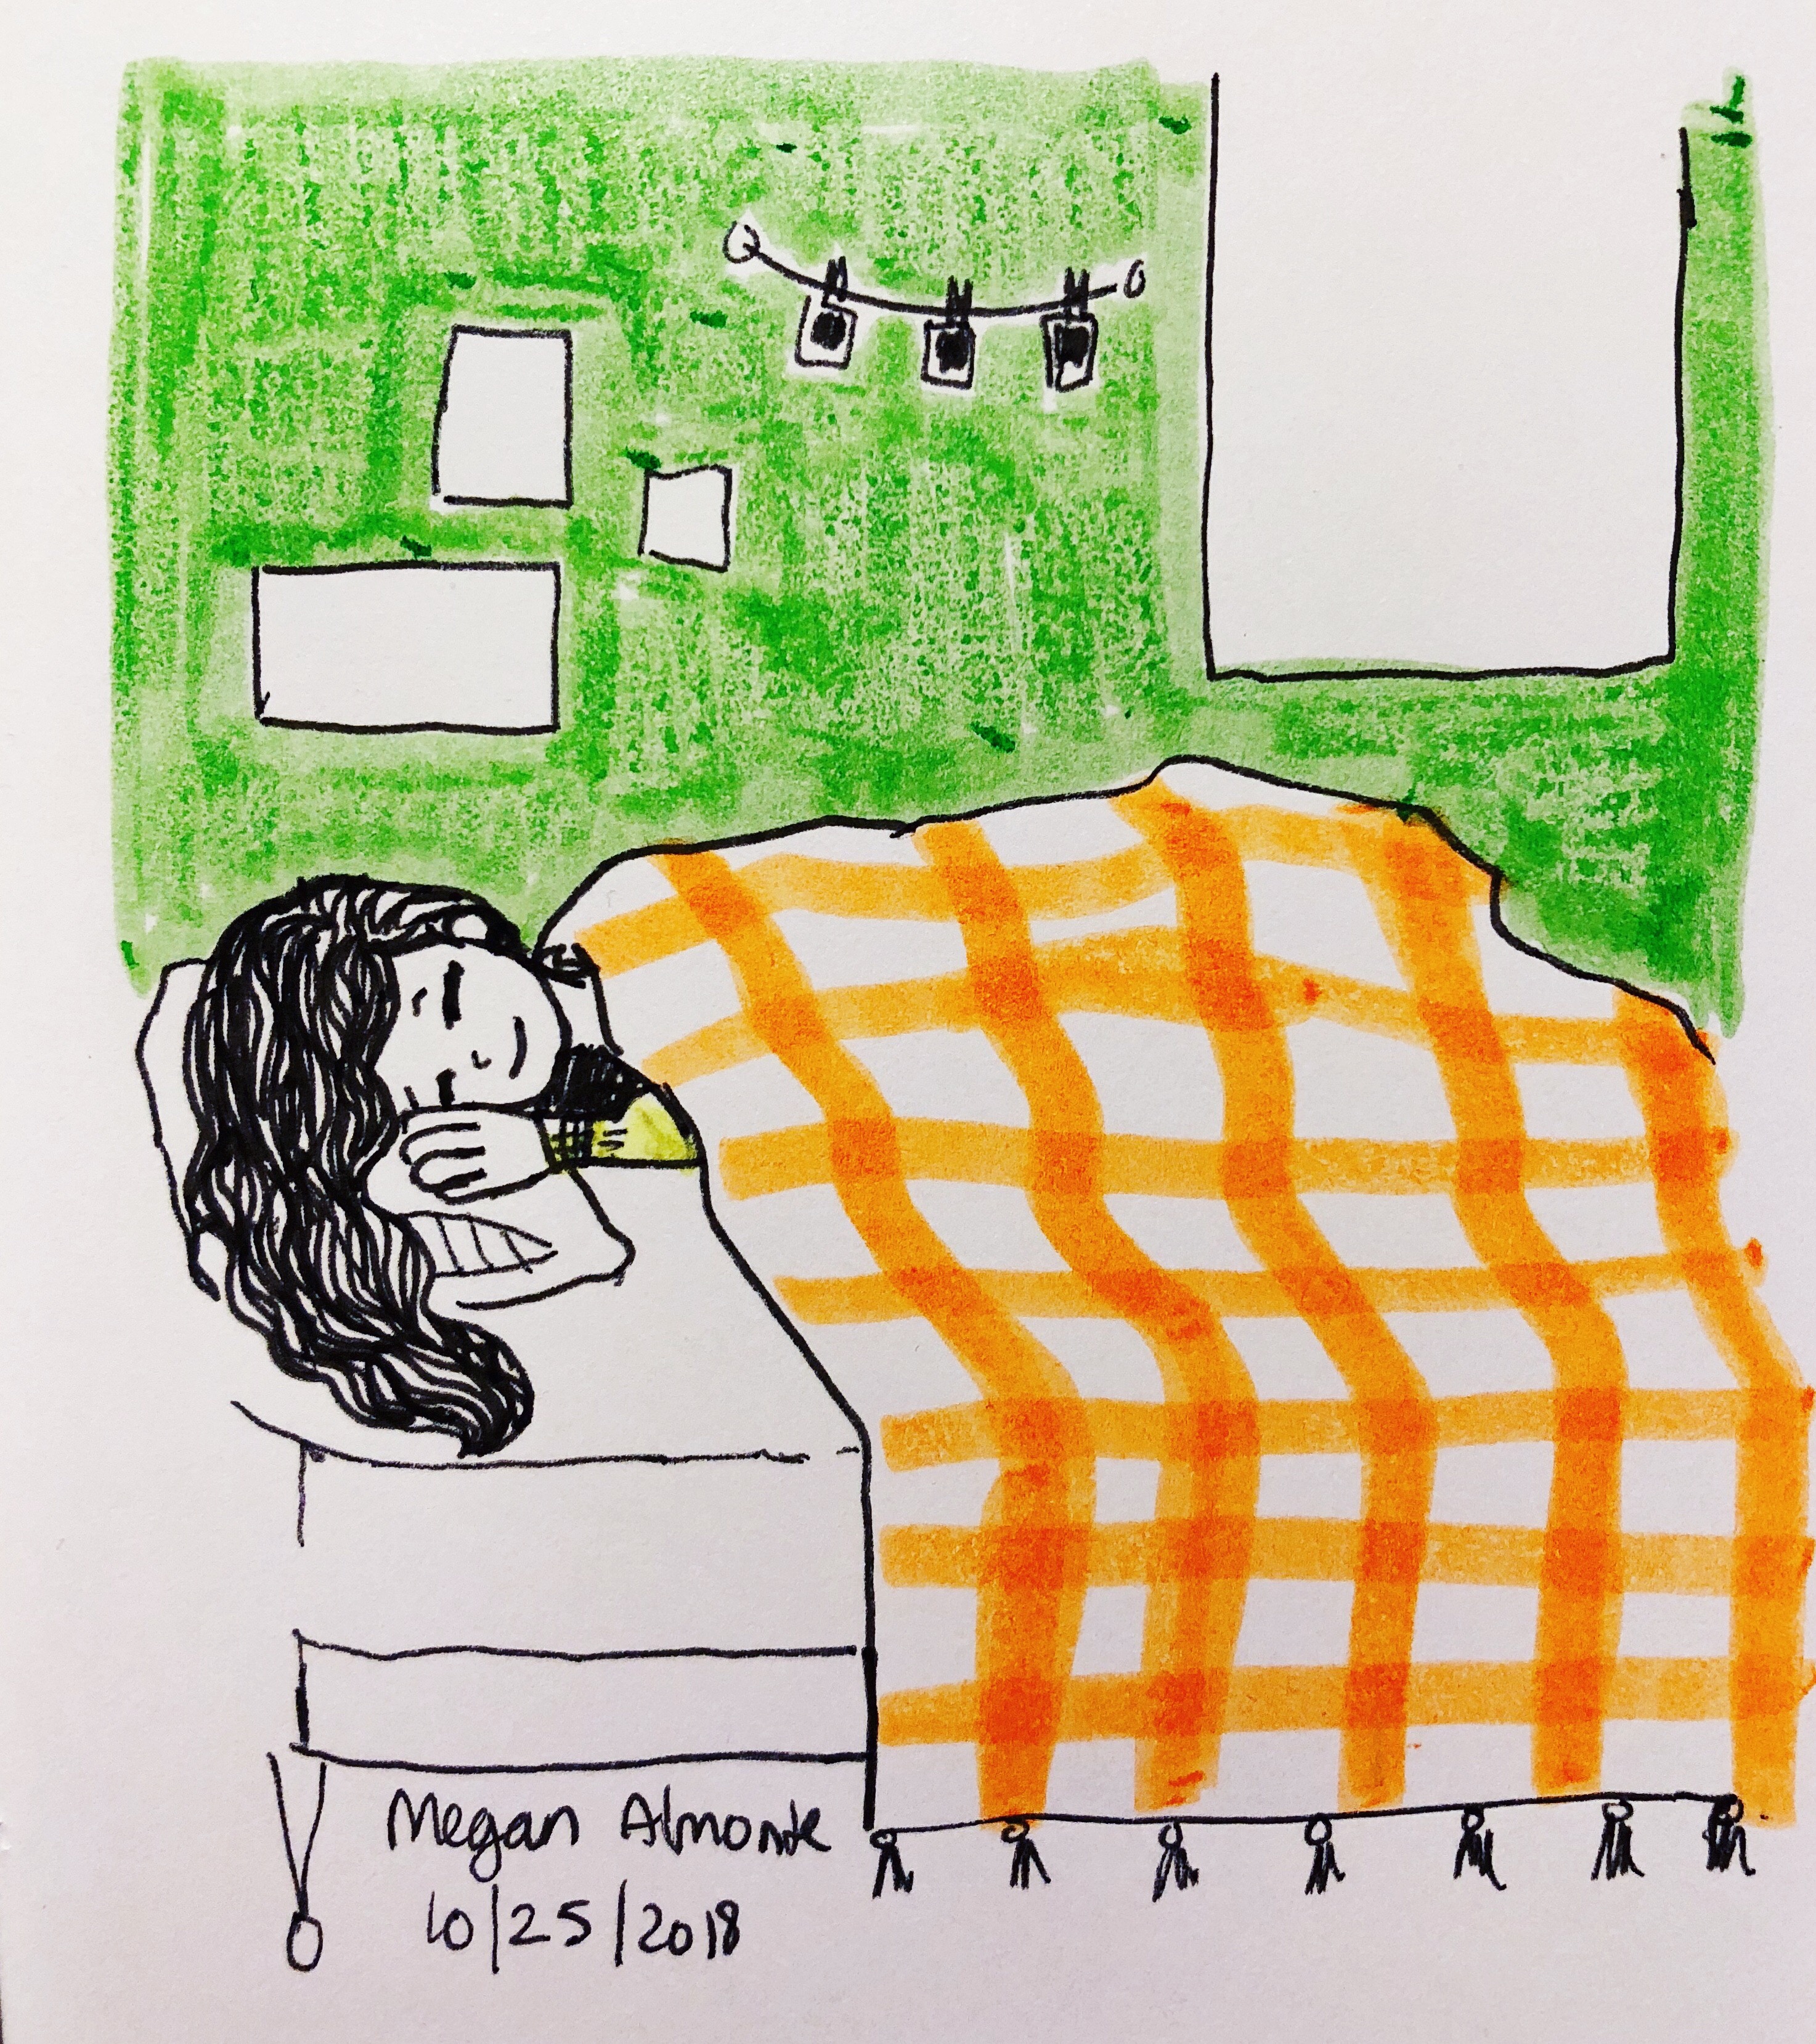 Megan Almonte
10/25/2018